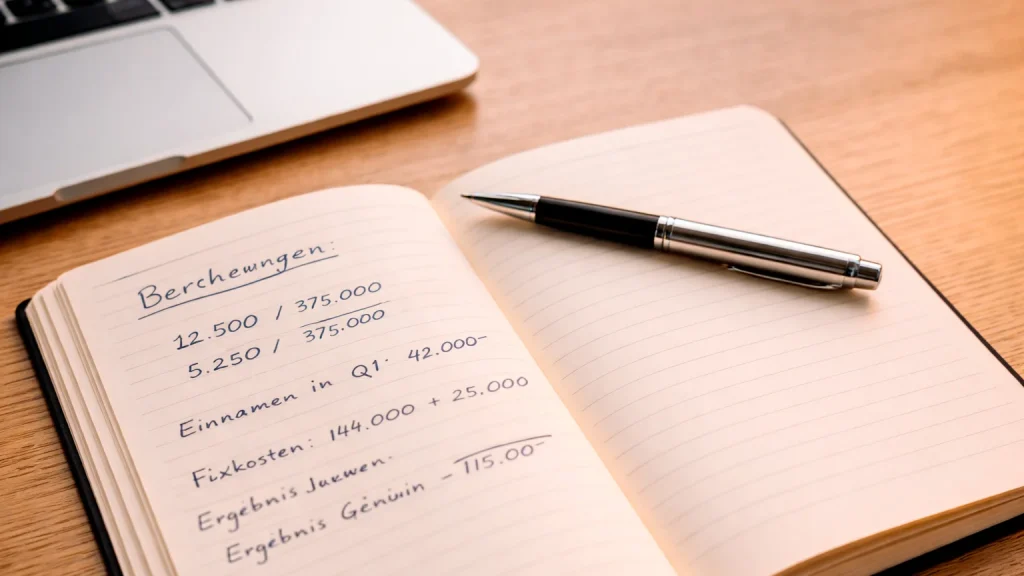 Berchewngen:
12.500 / 375.000
5.250 / 375.000
Einnamen in Q1: 42.000-
Fixkosten: 144.000 + 25.000
Ergebnis
Ergebnis - 115.00-